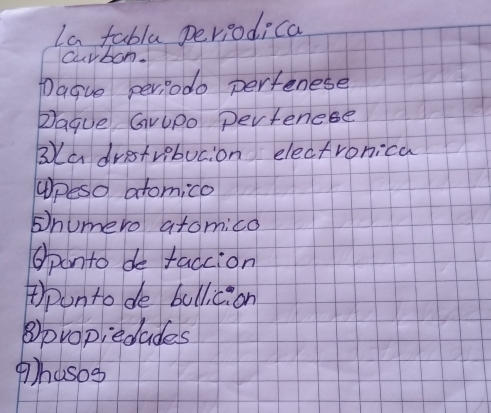 la tabla periodica
carbon.
1)aque periodo pertenese
2)aque Grupo pertenese
3)La dristribucion electronica
4)peso atomico
5)numero atomico
6)ponto de faccion
7)punto de bullicion
8)propiedades
9)husos